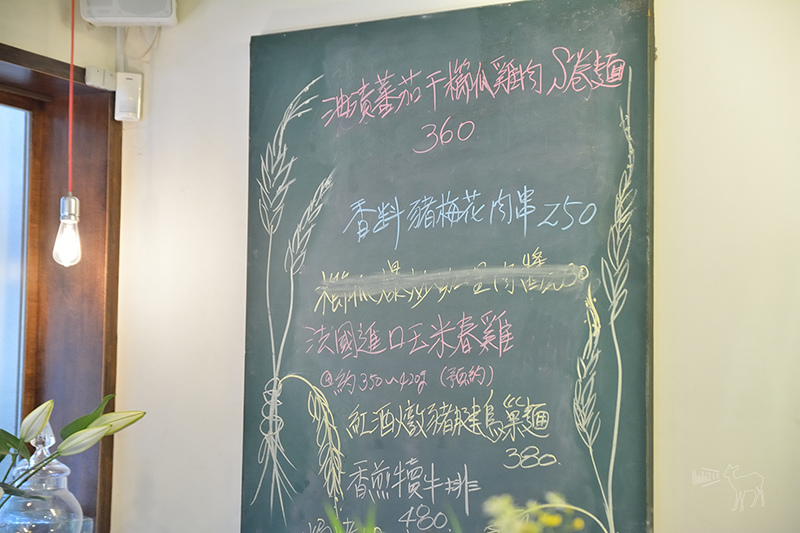 油漬蕃茄干櫛瓜雞肉S卷麵
360
香料豬梅花肉串250
法國進口玉米春雞
@約350~420g (預約)
紅酒燉豬腱鳥巢麵
380.
香煎犢牛排
480.